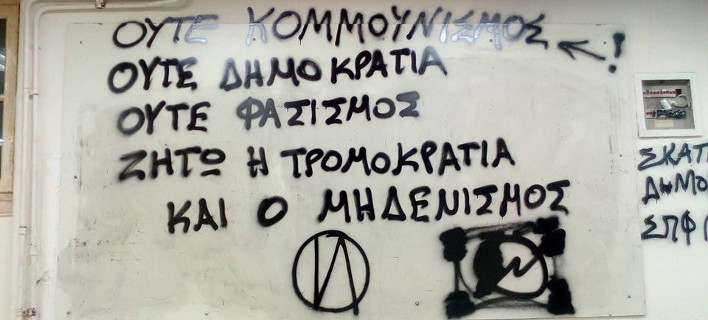 ΟΥΤΕ ΚΟΜΜΟΥΝΙΣΜΟΣ
!
ΟΥΤΕ ΔΗΜΟΚΡΑΤΙΑ
ΟΥΤΕ ΦΑΣΙΣΜΟΣ
ΖΗΤΩ Η ΤΡΟΜΟΚΡΑΤΙΑ
ΚΑΙ Ο ΜΗΔΕΝΙΣΜΟΣ